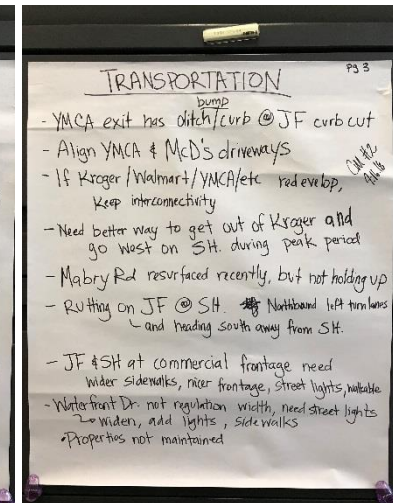 Pg 3
TRANSPORTATION
bump
- YMCA exit has ditch/curb @ JF curb cut
- Align YMCA & McD's driveways
- If Kroger/Walmart/YMCA/etc redevelop,
Keep interconnectivity
CM #2
- Need better way to get out of Kroger and
go West on SH. during peak period
- Mabry Rd resurfaced recently, but not holding up
- Rutting on JF @ SH. Northbound left turn lanes
and heading south away from SH.
- JF & SH at commercial frontage need
wider sidewalks, nicer frontage, street lights, walkable
- Waterfront Dr. not regulation width, need street lights
widen, add lights, sidewalks
• Properties not maintained